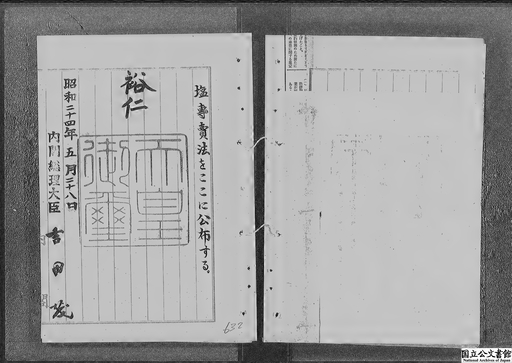 塩專賣法をここに公布する。
裕仁
天皇御璽
昭和二十四年五月二十八日
内閣総理大臣 吉田茂
632
国立公文書館
National Archives of Japan